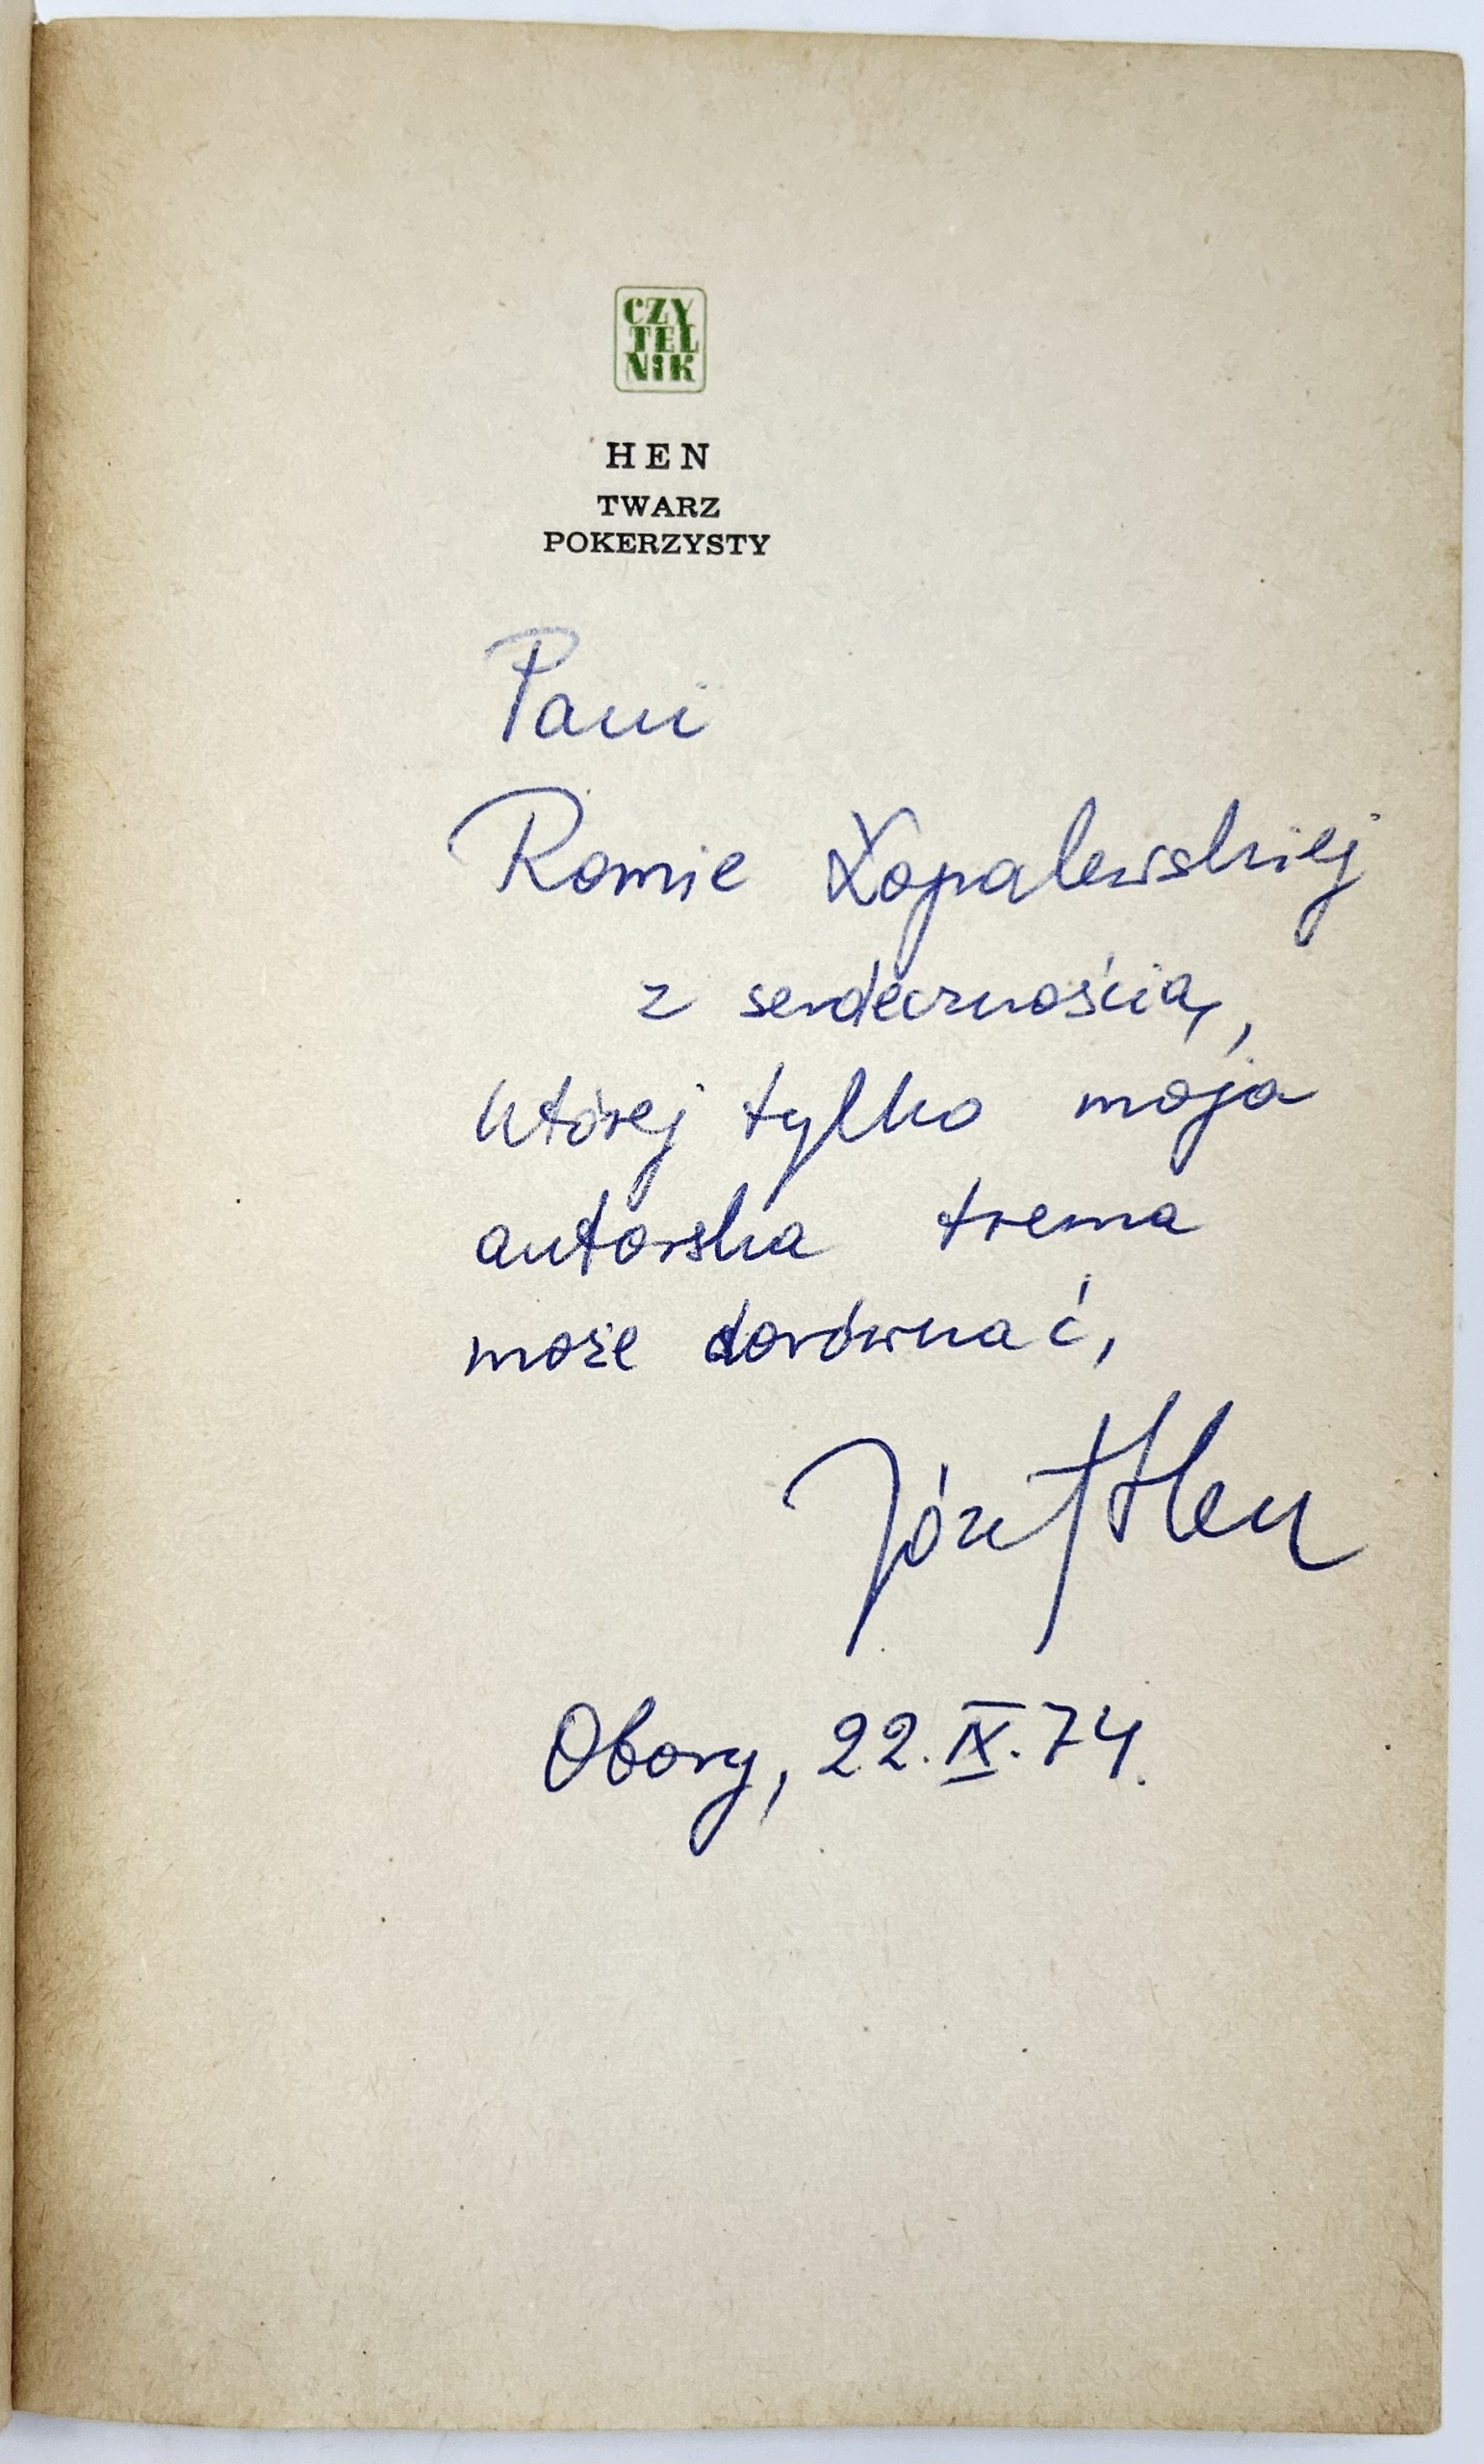 CZY
TEL
NIK
HEN
TWARZ
POKERZYSTY
Pani
Romie Łopalewskiej
z serdecznością,
której tylko moja
autorska trema
może dorównać,
Józef Hen
Obory, 22.IX.74.